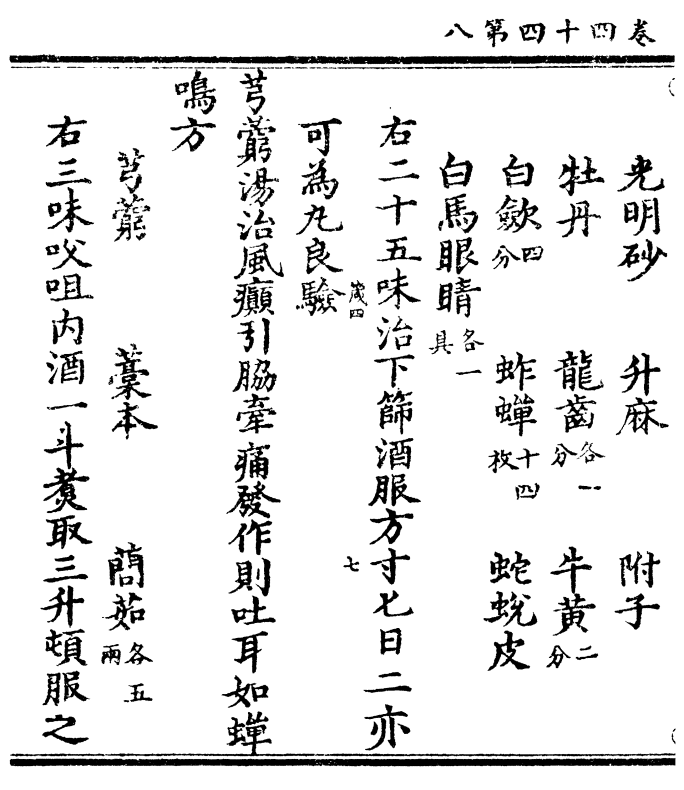 卷四十四第八
光明砂　升麻　附子
牡丹　龍齒各一分　牛黃二分
白歛四分　蚱蟬十四枚　蛇蛻皮
白馬眼睛各一具
右二十五味治下篩酒服方寸匕日二亦
七
可為丸良驗
歲四
芎藭湯治風癲引脇牽痛發作則吐耳如蟬
鳴方
芎藭　藁本　䕡茹各五兩
右三味㕮咀内酒一斗煑取三升頓服之